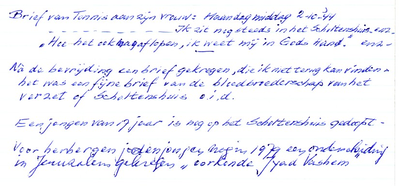 Brief van Tonnis aan zijn vrouw: Maandag middag 2-10-'44
Ik zit nog steeds in het Scholtenshuis. enz-
"Hoe het ook mag aflopen, ik weet mij in Gods hand." enz-
Na de bevrijding een brief gekregen, die ik niet terug kan vinden -
het was een fijne brief van de bloedbroederschap van het
verzet of Scholtenshuis o.i.d.
Een jongen van 7 jaar is nog op het Scholtenshuis gedoopt -
Voor herbergen joden jongen kregen 1979 een onderscheiding
in Jerusalem gekregen, "oorkonde Yad Vashem"